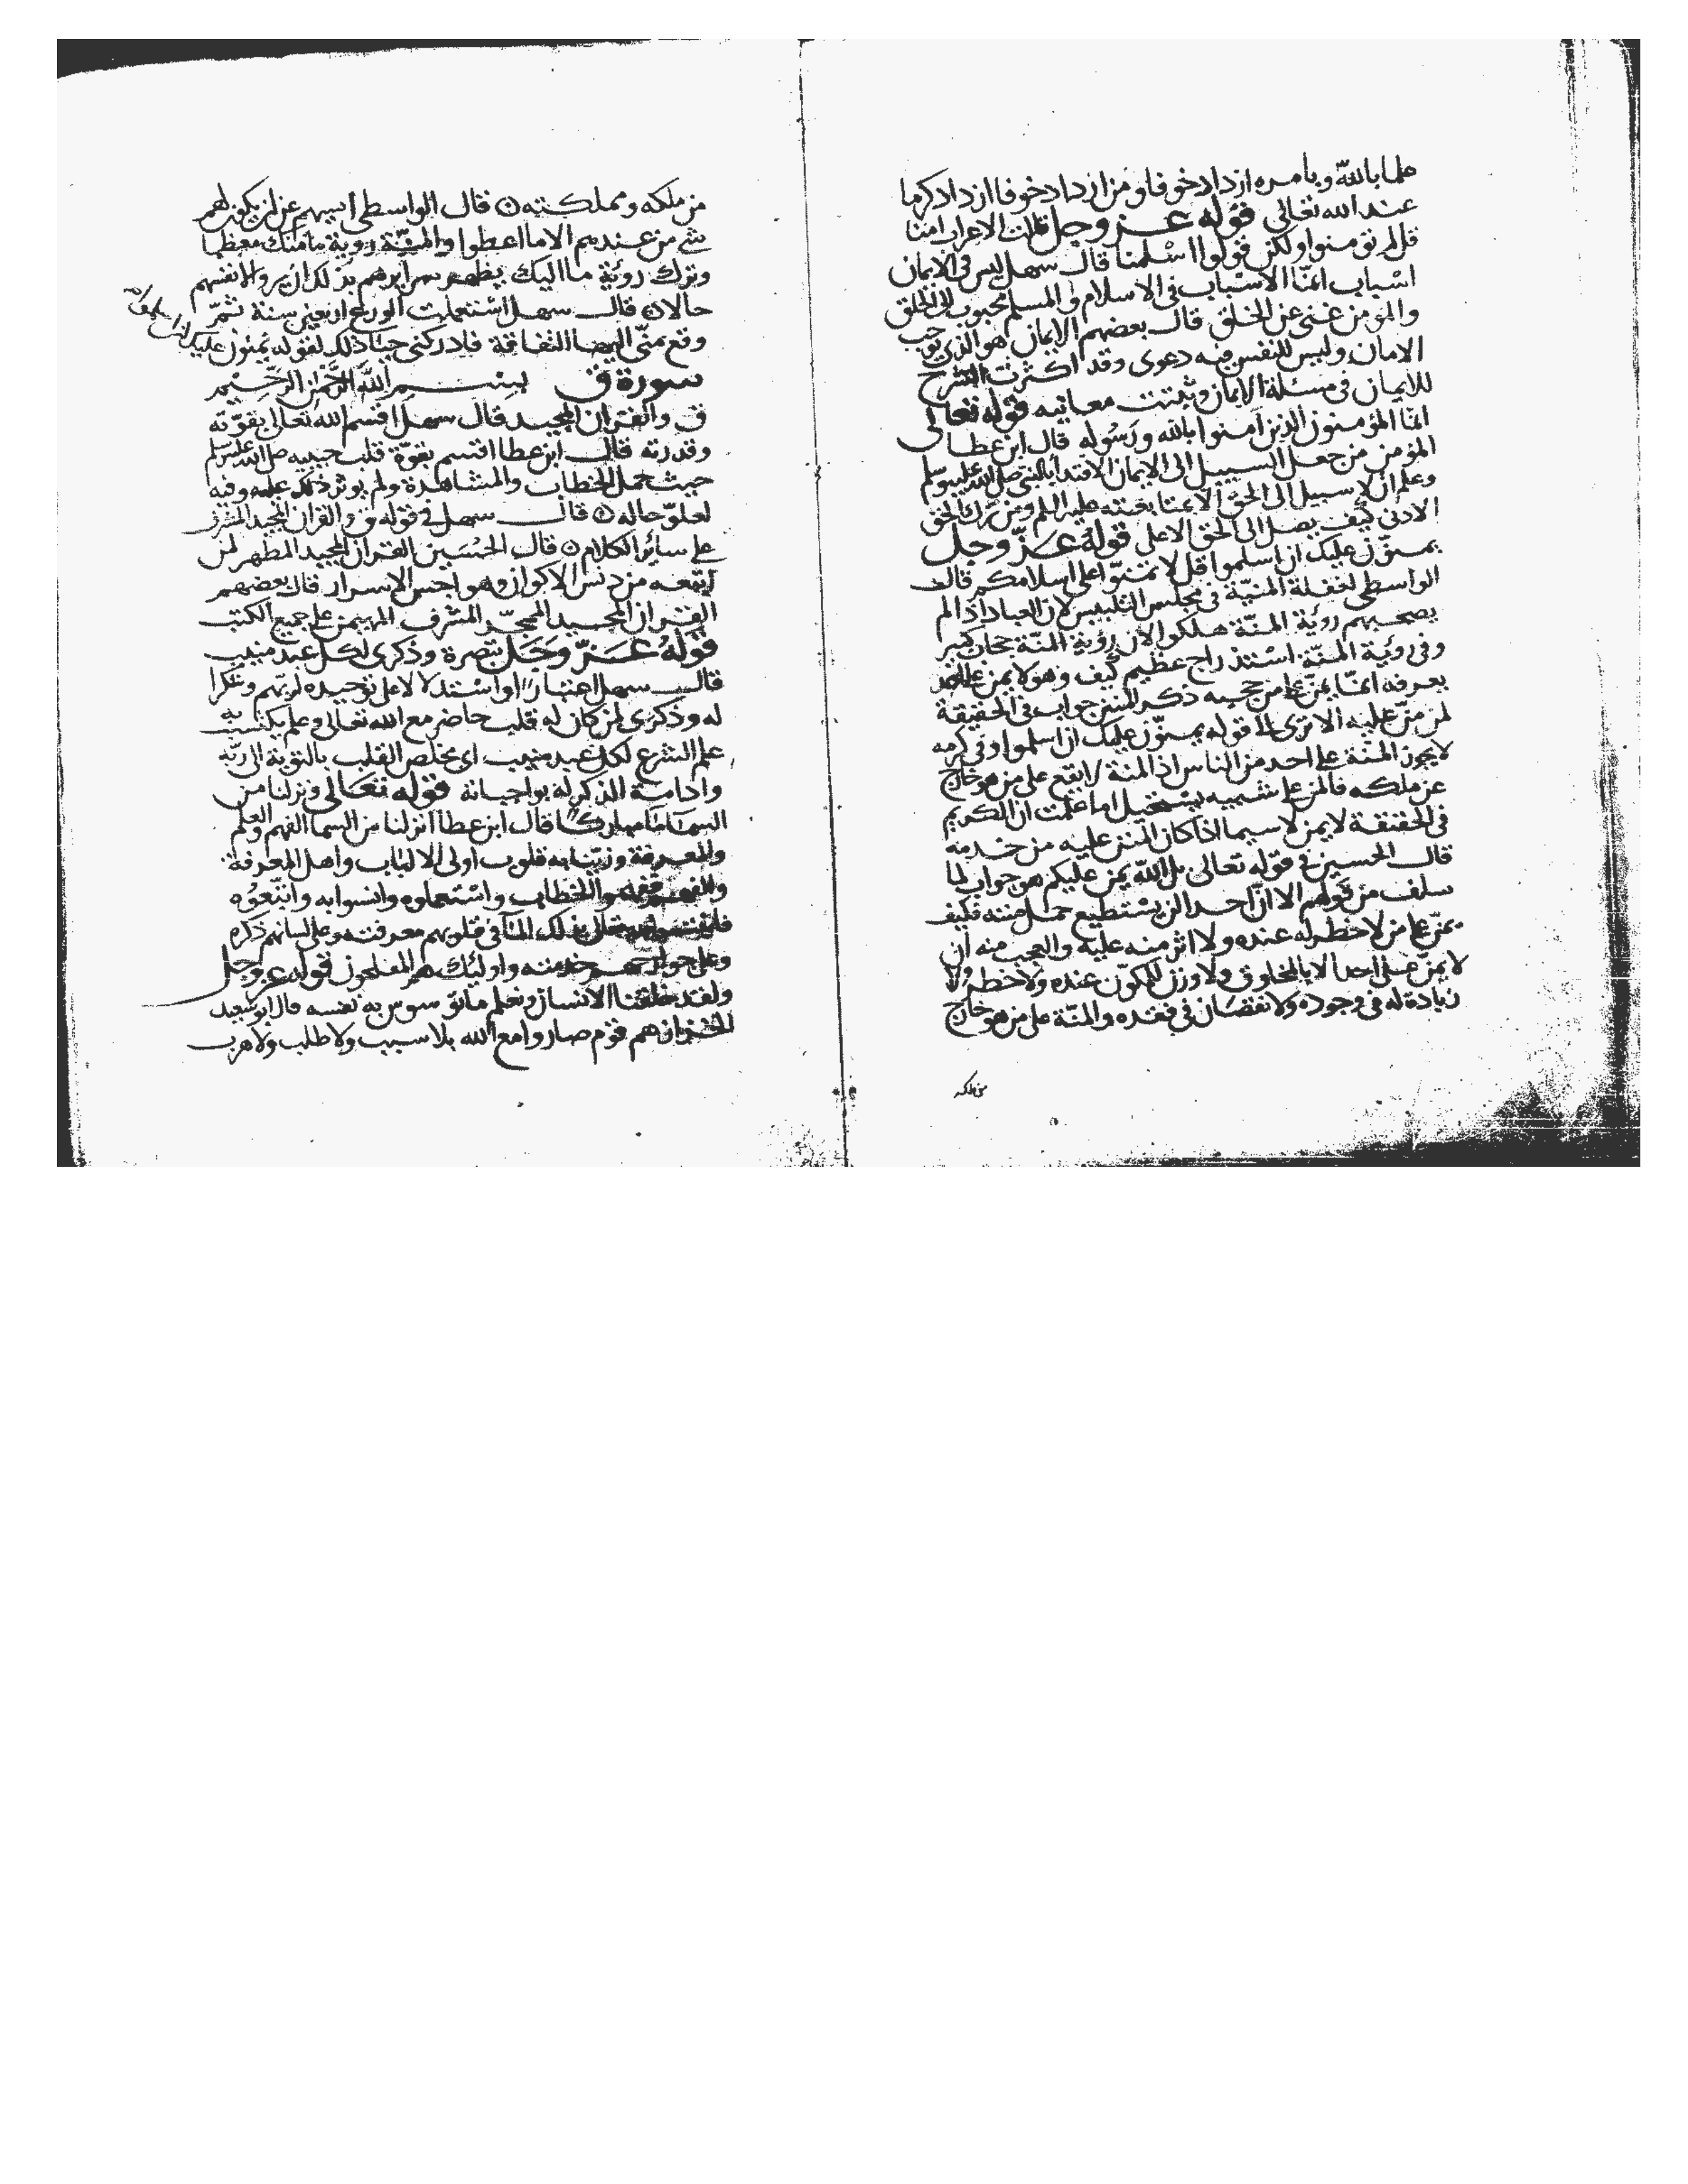 علما بالله وبامره ازداد خوفا ومن ازداد خوفا ازداد كرما
عند الله تعالى قوله عز وجل قالت الاعراب امنا
قل لم تومنوا ولكن قولوا اسلمنا قال سهل ليس في الايمان
اسباب انما الاسباب في الاسلام والمسلم محبوب الى الخلق
والمؤمن غنى عن الخلق قال بعضهم الايمان هو الذى يوجب
الامان وليس للنفس فيه دعوى وقد اكثرت الشرح
للايمان في مسئلة الايمان وبينت معانيه قوله تعالى
انما المؤمنون الذين آمنوا بالله ورسوله قال ابن عطا
المؤمن من جعل السبيل الى الايمان الاقتدا بالنبى صلى الله عليه وسلم
وعلم ان لا سبيل الى الحق الا بمتابعته عليه السلم ومن ترك الحق
الادنى كيف يصل الى الحق الاعلى قوله عز وجل
يمنون عليك ان اسلموا قل لا تمنوا على اسلامكم قال
الواسطى لغفلة المنية في مجلس التلبيس لان العباد اذا لم
يصحبهم روية المنة هلكوا لان رؤية المنة حجاب كبير
وفى رؤية المنة استدراج عظيم كيف وهو لا يمن على احد
يعرفه انما يمن على من حجبه ذكر المنن جواب في الحقيقة
لمن من عليه الا ترى الى قوله يمنون عليك ان اسلموا وفى كرمه
لا يجوز المنة على احد من الناس اذ المنة لا يقع على من هو خارج
عن ملكه فالمن على شبيه يستحيل اما علمت ان الكريم
في الحقيقة لا يمن لا سيما اذا كان المنن عليه من خدمه
قال الحسين في قوله تعالى بل الله يمن عليكم هو جواب لما
سلف من قولهم الا ان احدا لن يستطيع حمل منته فكيف
يمن على من لا خطر له عنده ولا اثر منه عليه والعجب منه ان
لا يمن على احد الا بالمخلوق ولا وزن للمكون عنده ولا خطر ولا
زيادة له في وجوده ولا نقصان في فقده والمنة على من هو خارج
من ملكه
من ملكه ومملكته قال الواسطى ايسهم عن ان يكون لهم
شى من عندهم الا ما اعطوا والمنة روية ما منك معظما
وترك رؤية ما اليك يظهر سرايرهم بذلك ان يروا لانفسهم
حالا قال سهل استعملت الورع اربعين سنة ثم
وقع منى اليها التفاتة فادركنى قوله يمنون عليك ان اسلموا
سورة ق بسم الله الرحمن الرحيم
ق والقران المجيد قال سهل اقسم الله تعالى بقوته
وقدرته قال ابن عطا اقسم بقوة قلب حبيبه صلى الله عليه وسلم
حيث حمل الخطاب والمشاهدة ولم يوثر ذلك عليه وفيه
لعلو حاله قال سهل في قوله ق والقران المجيد المشرف
على سائر الكلام قال الحسين القران المجيد المطهر لمن
اتبعه من دنس الاكوان وهواجس الاسرار قال بعضهم
القران المجيد المشرف المهيمن على جميع الكتب
قوله عز وجل تبصرة وذكرى لكل عبد منيب
قال سهل اعتبارا واستدلالا على توحيده لربهم وشكرا
له وذكرى لمن كان له قلب حاضر مع الله تعالى وعلم يكتسب به
علم الشرع لكل عبد منيب اى مخلص القلب بالتوبة الى ربه
وادامة الذكر له بواجباته قوله تعالى ونزلنا من
السماء ماء مباركا قال ابن عطا انزلنا من السما الفهم والعلم
والمعرفة وزينا به قلوب اولى الالباب واهل المعرفة
والفهم ففهموا الخطاب واستعملوه وانسوا به واتبعوه
بذلك الماء في قلوبهم معرفته وعلى لسانهم ذكره
وعلى جوارحهم خدمته واولئك هم المفلحون قوله عز وجل
ولقد خلقنا الانسان ونعلم ما توسوس به نفسه قال ابو سعيد
الخراز هم قوم صاروا مع الله بلا سبب ولا طلب ولا هرب